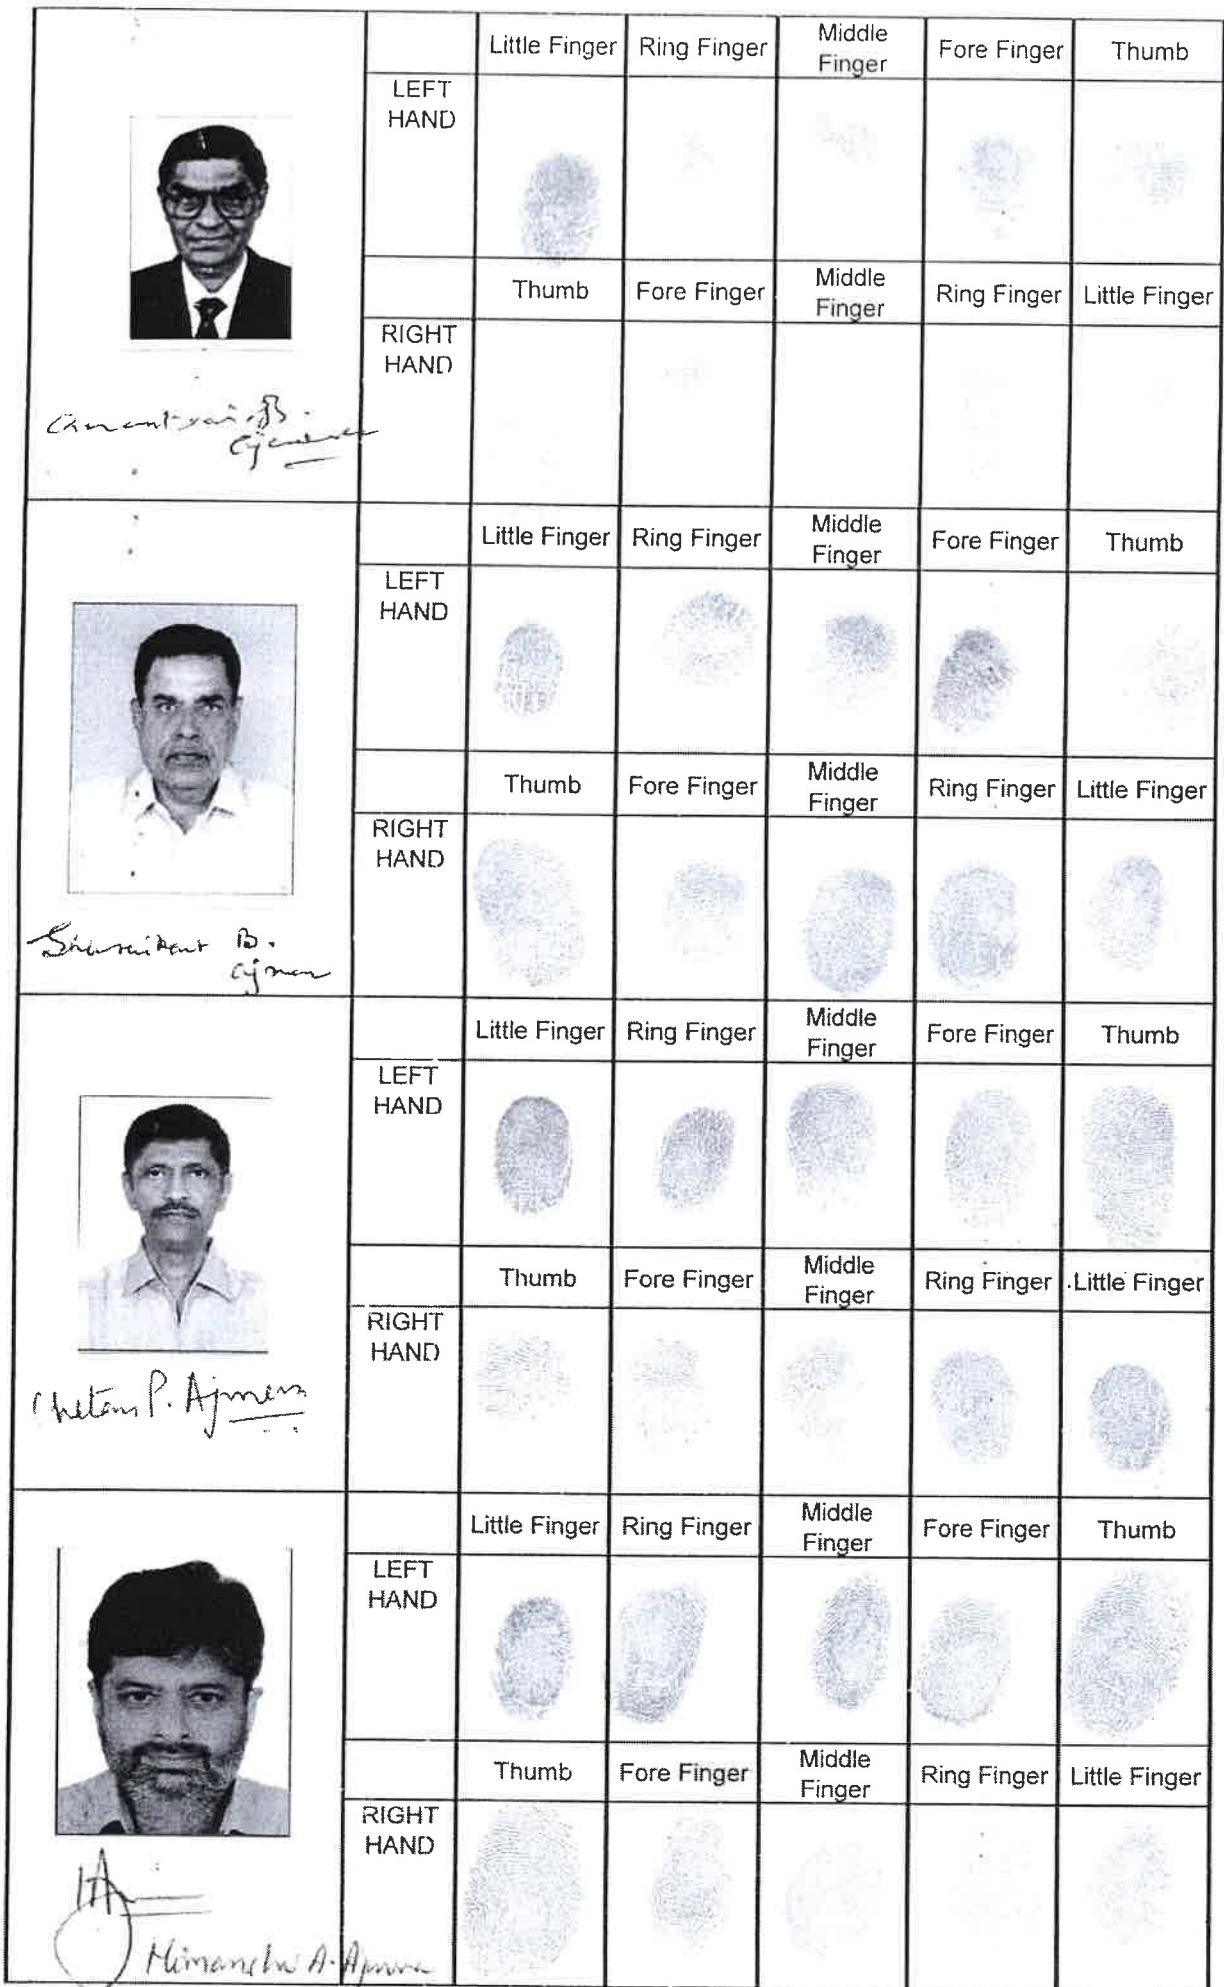 Little Finger Ring Finger Middle Finger Fore Finger Thumb
LEFT HAND
Thumb Fore Finger Middle Finger Ring Finger Little Finger
RIGHT HAND
B.
Little Finger Ring Finger Middle Finger Fore Finger Thumb
LEFT HAND
Thumb Fore Finger Middle Finger Ring Finger Little Finger
RIGHT HAND
B.
Little Finger Ring Finger Middle Finger Fore Finger Thumb
LEFT HAND
Thumb Fore Finger Middle Finger Ring Finger Little Finger
RIGHT HAND
Chetan P. Ajmera
Little Finger Ring Finger Middle Finger Fore Finger Thumb
LEFT HAND
Thumb Fore Finger Middle Finger Ring Finger Little Finger
RIGHT HAND
Himanshu A. Ajmera